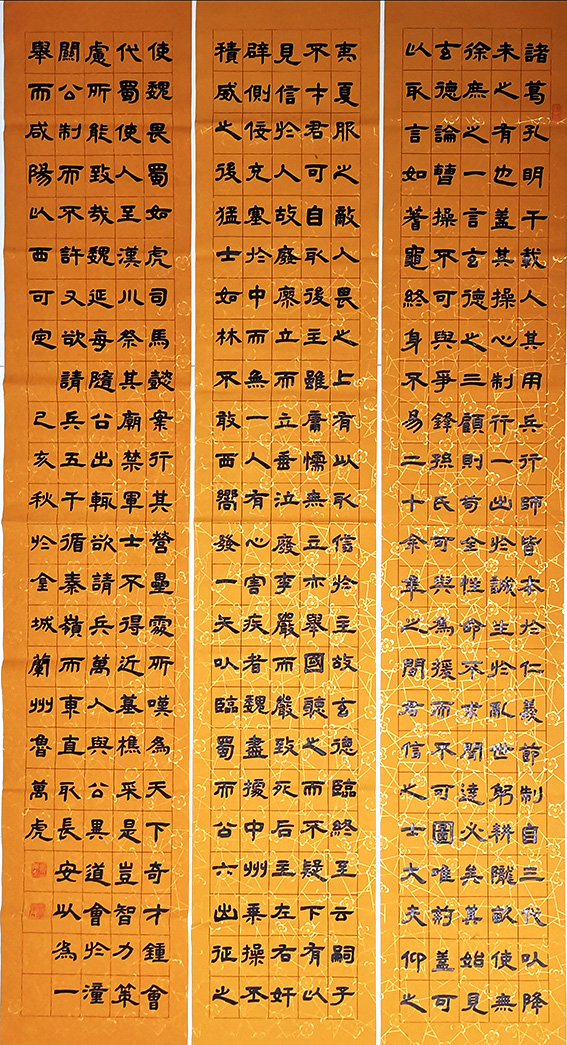 諸葛孔明千載人其用兵行師皆本於仁義節制自三代以降
未之有也蓋其操心制行一出於誠生於亂世躬耕隴畝使無
徐庶之一言玄德之三顧則苟全性命不求聞達必矣其始見
玄德論曹操不可與爭鋒孫氏可與為援而不可圖唯荊益可
以取言如蓍龜終身不易二十余年之間君信之士大夫仰之
夷夏服之敵人畏之上有以取信於主故玄德臨終至云嗣子
不才君可自取後主雖庸懦無立亦舉國聽之而不疑下有以
見信於人故廢廖立而立垂泣廢李嚴而嚴致死后主左右奸
辟側佞充塞於中而無一人有心害疾者魏盡據中州乘操丕
積威之後猛士如林不敢西嚮發一矢以臨蜀而公六出征之
使魏畏蜀如虎司馬懿案行其營壘處所嘆為天下奇才鍾會
代蜀使人至漢川祭其廟禁軍士不得近墓樵采是豈智力策
慮所能致哉魏延每隨公出輒欲請兵萬人與公異道會於潼
關公制而不許又欲請兵五千循秦嶺而車直取長安以為一
舉而咸陽以西可定 己亥秋於金城蘭州魯萬虎